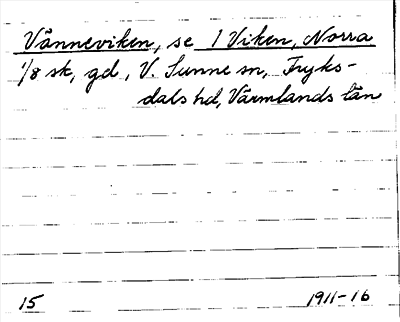 Vänneviken, se 1 Viken, Norra
1/8 sk, gd, V. Sunne sn, Fryks-
dals hd, Värmlands län
15 1911-16